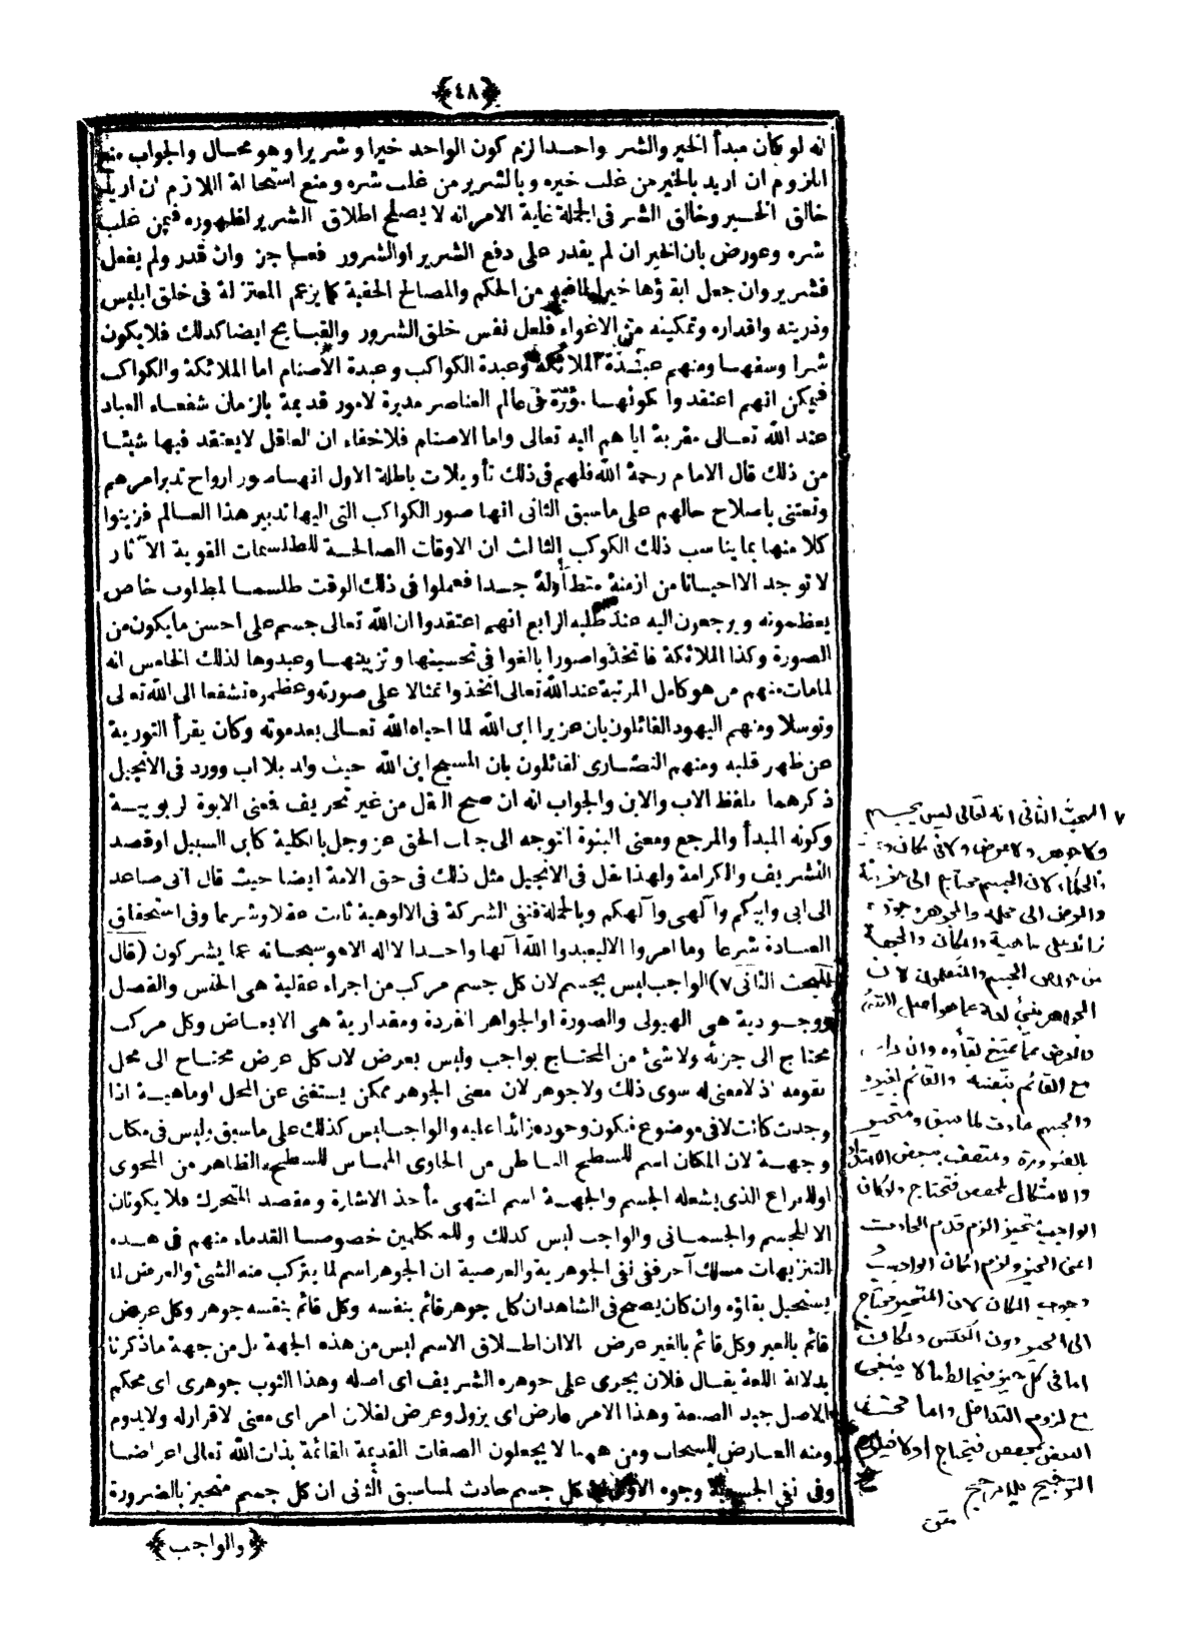 ﴿٤٨﴾
انه لو كان مبدأ الخير والشر واحدا لزم كون الواحد خيرا وشريرا وهو محال والجواب منع
الملزوم ان اريد بالخير من غلب خيره وبالشرير من غلب شره ومنع استحالة اللازم ان اريد
خالق الخير وخالق الشر فى الجملة غاية الامر انه لا يصلح اطلاق الشرير لظهوره فيمن غلب
شره وعورض بان الخير ان لم يقدر على دفع الشرير او الشرور فعاجز وان قدر ولم يفعل
فشرير وان جعل ابقاؤها خيرا لما فيه من الحكم والمصالح الخفية كما يزعم المعتزلة فى خلق ابليس
وذريته واقداره وتمكينه من الاغواء فلعل نفس خلق الشرور والقبايح ايضا كذلك فلا يكون
شرا وسفها ومنهم عبدة الملائكة وعبدة الكواكب وعبدة الاصنام اما الملائكة والكواكب
فيمكن انهم اعتقدوا كونها مؤثرة فى عالم العناصر مدبرة لامور قديمة بالزمان شفعاء العباد
عند الله تعالى مقربة اياهم اليه تعالى واما الاصنام فلا خفاء ان العاقل لا يعتقد فيها شيئا
من ذلك قال الامام رحمة الله فلهم فى ذلك تأويلات باطلة الاول انها صور ارواح تدبر امرهم
وتعتنى باصلاح حالهم على ما سبق الثانى انها صور الكواكب التى اليها تدبير هذا العالم فزينوا
كلا منها بما يناسب ذلك الكوكب الثالث ان الاوقات الصالحة للطلسمات القوية الآثار
لا توجد الا احيانا من ازمنة متطاولة جدا فعملوا فى ذلك الوقت طلسما لمطلوب خاص
يعظمونه ويرجعون اليه عند طلبه الرابع انهم اعتقدوا ان الله تعالى جسم على احسن ما يكون من
الصورة وكذا الملائكة فاتخذوا صورا بالغوا فى تحسينها وتزيينها وعبدوها لذلك الخامس انه
لما مات منهم من هو كامل المرتبة عند الله تعالى اتخذوا تمثالا على صورته وعظموه تشفعا الى الله تعالى
وتوسلا ومنهم اليهود القائلون بان عزيرا ابن الله لما احياه الله تعالى بعد موته وكان يقرأ التورية
عن ظهر قلبه ومنهم النصارى القائلون بان المسيح ابن الله حيث ولد بلا اب وورد فى الانجيل
ذكرهما بلفظ الاب والابن والجواب انه ان صح النقل من غير تحريف فمعنى الابوة الربوبية
وكونه المبدأ والمرجع ومعنى البنوة التوجه الى جناب الحق عز وجل بالكلية كابن السبيل او قصد
التشريف والكرامة ولهذا نقل فى الانجيل مثل ذلك فى حق الامة ايضا حيث قال انى صاعد
الى ابى وابيكم وآلهى وآلهكم وبالجملة فنفى الشركة فى الالوهية ثابت عقلا وشرعا وفى استحقاق
العبادة شرعا وما امروا الا ليعبدوا الله آلها واحدا لا اله الا هو سبحانه عما يشركون (قال
المبحث الثانى ٧) الواجب ليس بجسم لان كل جسم مركب من اجزاء عقلية هى الجنس والفصل
ووجودية هى الهيولى والصورة او الجواهر الفردة ومقدارية هى الابعاض وكل مركب
محتاج الى جزئه ولا شئ من المحتاج بواجب وليس بعرض لان كل عرض محتاج الى محل
يقومه اذ لا معنى له سوى ذلك ولا جوهر لان معنى الجوهر ممكن يستغنى عن المحل او ماهية اذا
وجدت كانت لا فى موضوع فيكون وجوده زائدا عليه والواجب ليس كذلك على ما سبق وليس فى مكان
وجهة لان المكان اسم للسطح الباطن من الحاوى المماس للسطح الظاهر من المحوى
او للفراغ الذى يشغله الجسم والجهة اسم لمنتهى مأخذ الاشارة ومقصد المتحرك فلا يكونان
الا للجسم والجسمانى والواجب ليس كذلك وللمتكلمين خصوصا القدماء منهم فى هذه
التنزيهات مسلك آخر فنفى نفى الجوهرية والعرضية ان الجوهر اسم لما يتركب منه الشئ والعرض لما
يستحيل بقاؤه وان كان يصح فى الشاهد ان كل جوهر قائم بنفسه وكل قائم بنفسه جوهر وكل عرض
قائم بالغير وكل قائم بالغير عرض الا ان اطلاق الاسم ليس من هذه الجهة بل من جهة ما ذكرنا
بدلالة اللغة يقال فلان يجرى على جوهره الشريف اى اصله وهذا الثوب جوهرى اى محكم
الاصل جيد الصنعة وهذا الامر عارض اى يزول وعرض لفلان امر اى معنى لا قرار له ولا يدوم
ومنه العارض للسحاب ومن ههنا لا يجعلون الصفات القديمة القائمة بذات الله تعالى اعراضا
وفى نفى الجسمية وجوه الاول ان كل جسم حادث لما سبق الثانى ان كل جسم متحيز بالضرورة
﴿والواجب﴾
٧ المبحث الثانى انه تعالى ليس بجسم
ولا جوهر ولا عرض ولا فى مكان و
الحكماء لان الجسم محتاج الى جزئه
والعرض الى محله والجوهر وجوده
زائد على ماهية والمكان والجهة
من خواص الجسم والمتكلمون لان
الجوهر ينبئ لغة عما هو اصل الشئ
والعرض عما يمتنع بقاؤه وان دار
مع القائم بنفسه والقائم بغيره
والجسم حادث لما سبق ومتحيز
بالضرورة ومتصف ببعض الاضداد
والاشكال لمخصص فيحتاج ولو كان
الواجب متحيزا لزم قدم الحادث
اعنى الحيز ولزم امكان الواجب
وجوب المكان لان المتحيز محتاج
الى الحيز دون العكس ولكان
اما فى كل حيز فيخالط ما لا ينبغى
مع لزوم التداخل واما فى
البعض لمخصص فيحتاج او لا فيلزم
الترجيح بلا مرجح
متن